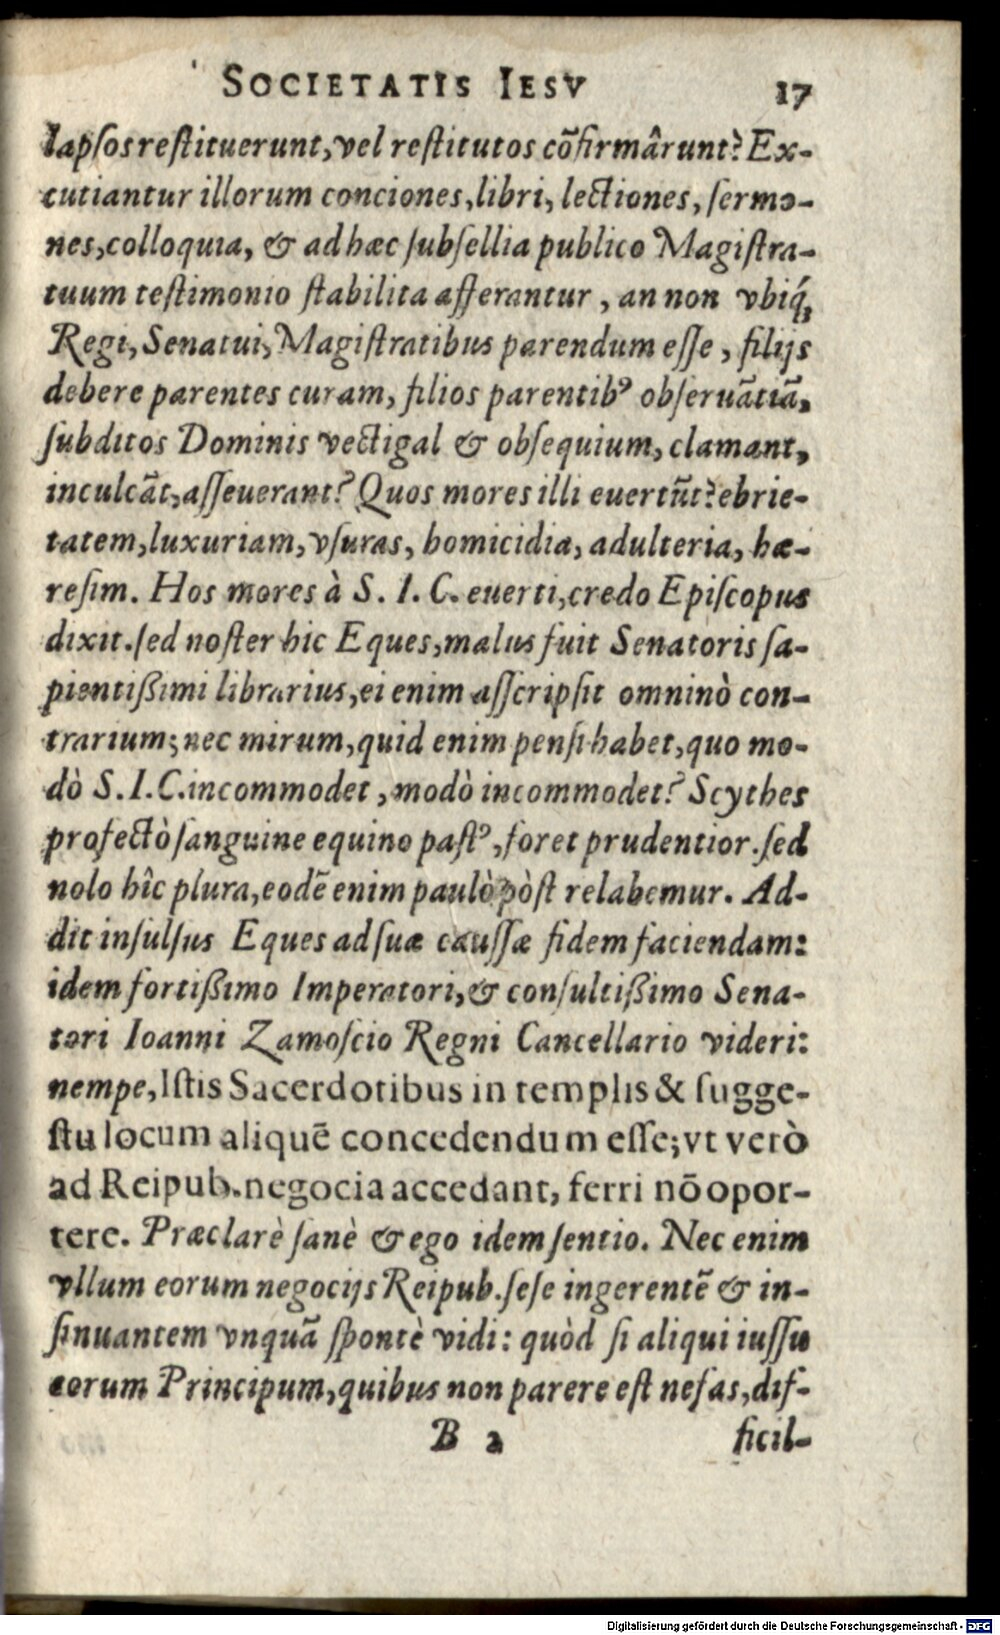 SOCIETATIS IESV 17
lapsos restituerunt, vel restitutos cõfirmârunt? Ex-
cutiantur illorum conciones, libri, lectiones, sermo-
nes, colloquia, & ad hæc subsellia publico Magistra-
tuum testimonio stabilita afferantur, an non vbiq́;
Regi, Senatui, Magistratibus parendum esse, filijs
debere parentes curam, filios parentibꝰ obseruãtiã,
subditos Dominis vectigal & obsequium, clamant,
inculcãt, asseuerant? Quos mores illi euertũt? ebrie-
tatem, luxuriam, vsuras, homicidia, adulteria, hæ-
resim. Hos mores à S. I. C. euerti, credo Episcopus
dixit. sed noster hic Eques, malus fuit Senatoris sa-
pientißimi librarius, ei enim asscripsit omninò con-
trarium; nec mirum, quid enim pensi habet, quo mo-
dò S. I. C. incommodet, modò incommodet? Scythes
profectò sanguine equino pastꝰ, foret prudentior. sed
nolo hîc plura, eodẽ enim paulò pòst relabemur. Ad-
dit insulsus Eques ad suæ caussæ fidem faciendam:
idem fortißimo Imperatori, & consultißimo Sena-
tori Ioanni Zamoscio Regni Cancellario videri:
nempe, Istis Sacerdotibus in templis & sugge-
stu locum aliquẽ concedendum esse; vt verò
ad Reipub. negocia accedant, ferri nõ opor-
tere. Præclarè sanè & ego idem sentio. Nec enim
vllum eorum negocijs Reipub. sese ingerentẽ & in-
sinuantem vnquã spontè vidi: quòd si aliqui iussu
eorum Principum, quibus non parere est nefas, dif-
B 2 ficil-
Digitalisierung gefördert durch die Deutsche Forschungsgemeinschaft - DFG